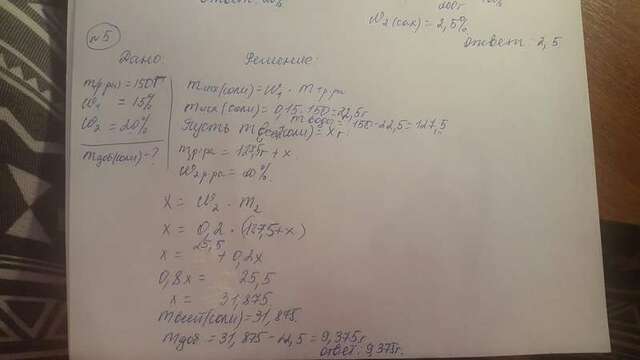 200г
ω₂(сах) = 2,5%
ответ: 2,5
№5
Дано:
Решение:
mр.ра = 150г
ω₁ = 15%
ω₂ = 20%
mдоб(соли) - ?
mисх(соли) = ω₁ · m₁р.ра
mисх(соли) = 0,15 · 150 = 22,5г
mводы = 150 - 22,5 = 127,5
Пусть m всей(соли) = x г
mр.ра = 127,5г + x
ω₂р.ра = 20%
x = ω₂ · m₂
x = 0,2 · (127,5 + x)
x = 25,5 + 0,2x
0,8x = 25,5
x = 31,875
mвсей(соли) = 31,875
mдоб = 31,875 - 22,5 = 9,375г
ответ: 9,375г.